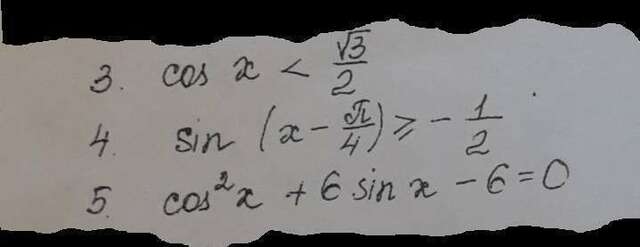 3. cos x < √3/2
4. sin (x - π/4) ≥ - 1/2
5. cos²x + 6 sin x - 6 = 0